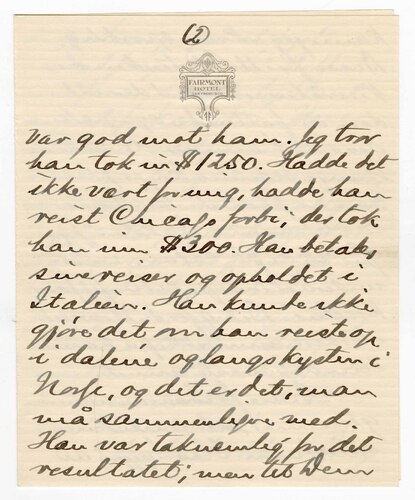 (2)
FAIRMONT
HOTEL
SAN FRANCISCO
var god mot ham. Jeg tror
han tok inn $1250. Hadde det
ikke vært for mig, hadde han
reist Chicago forbi; der tok
han inn $300. Han betaler
sine reiser og opholdet i
Italien. Han kunde ikke
gjøre det om han reiste op
i dalene og langs kysten i
Norge, og det er det, man
må sammenligne med.
Han var taknemlig for det
resultatet; men til Dem